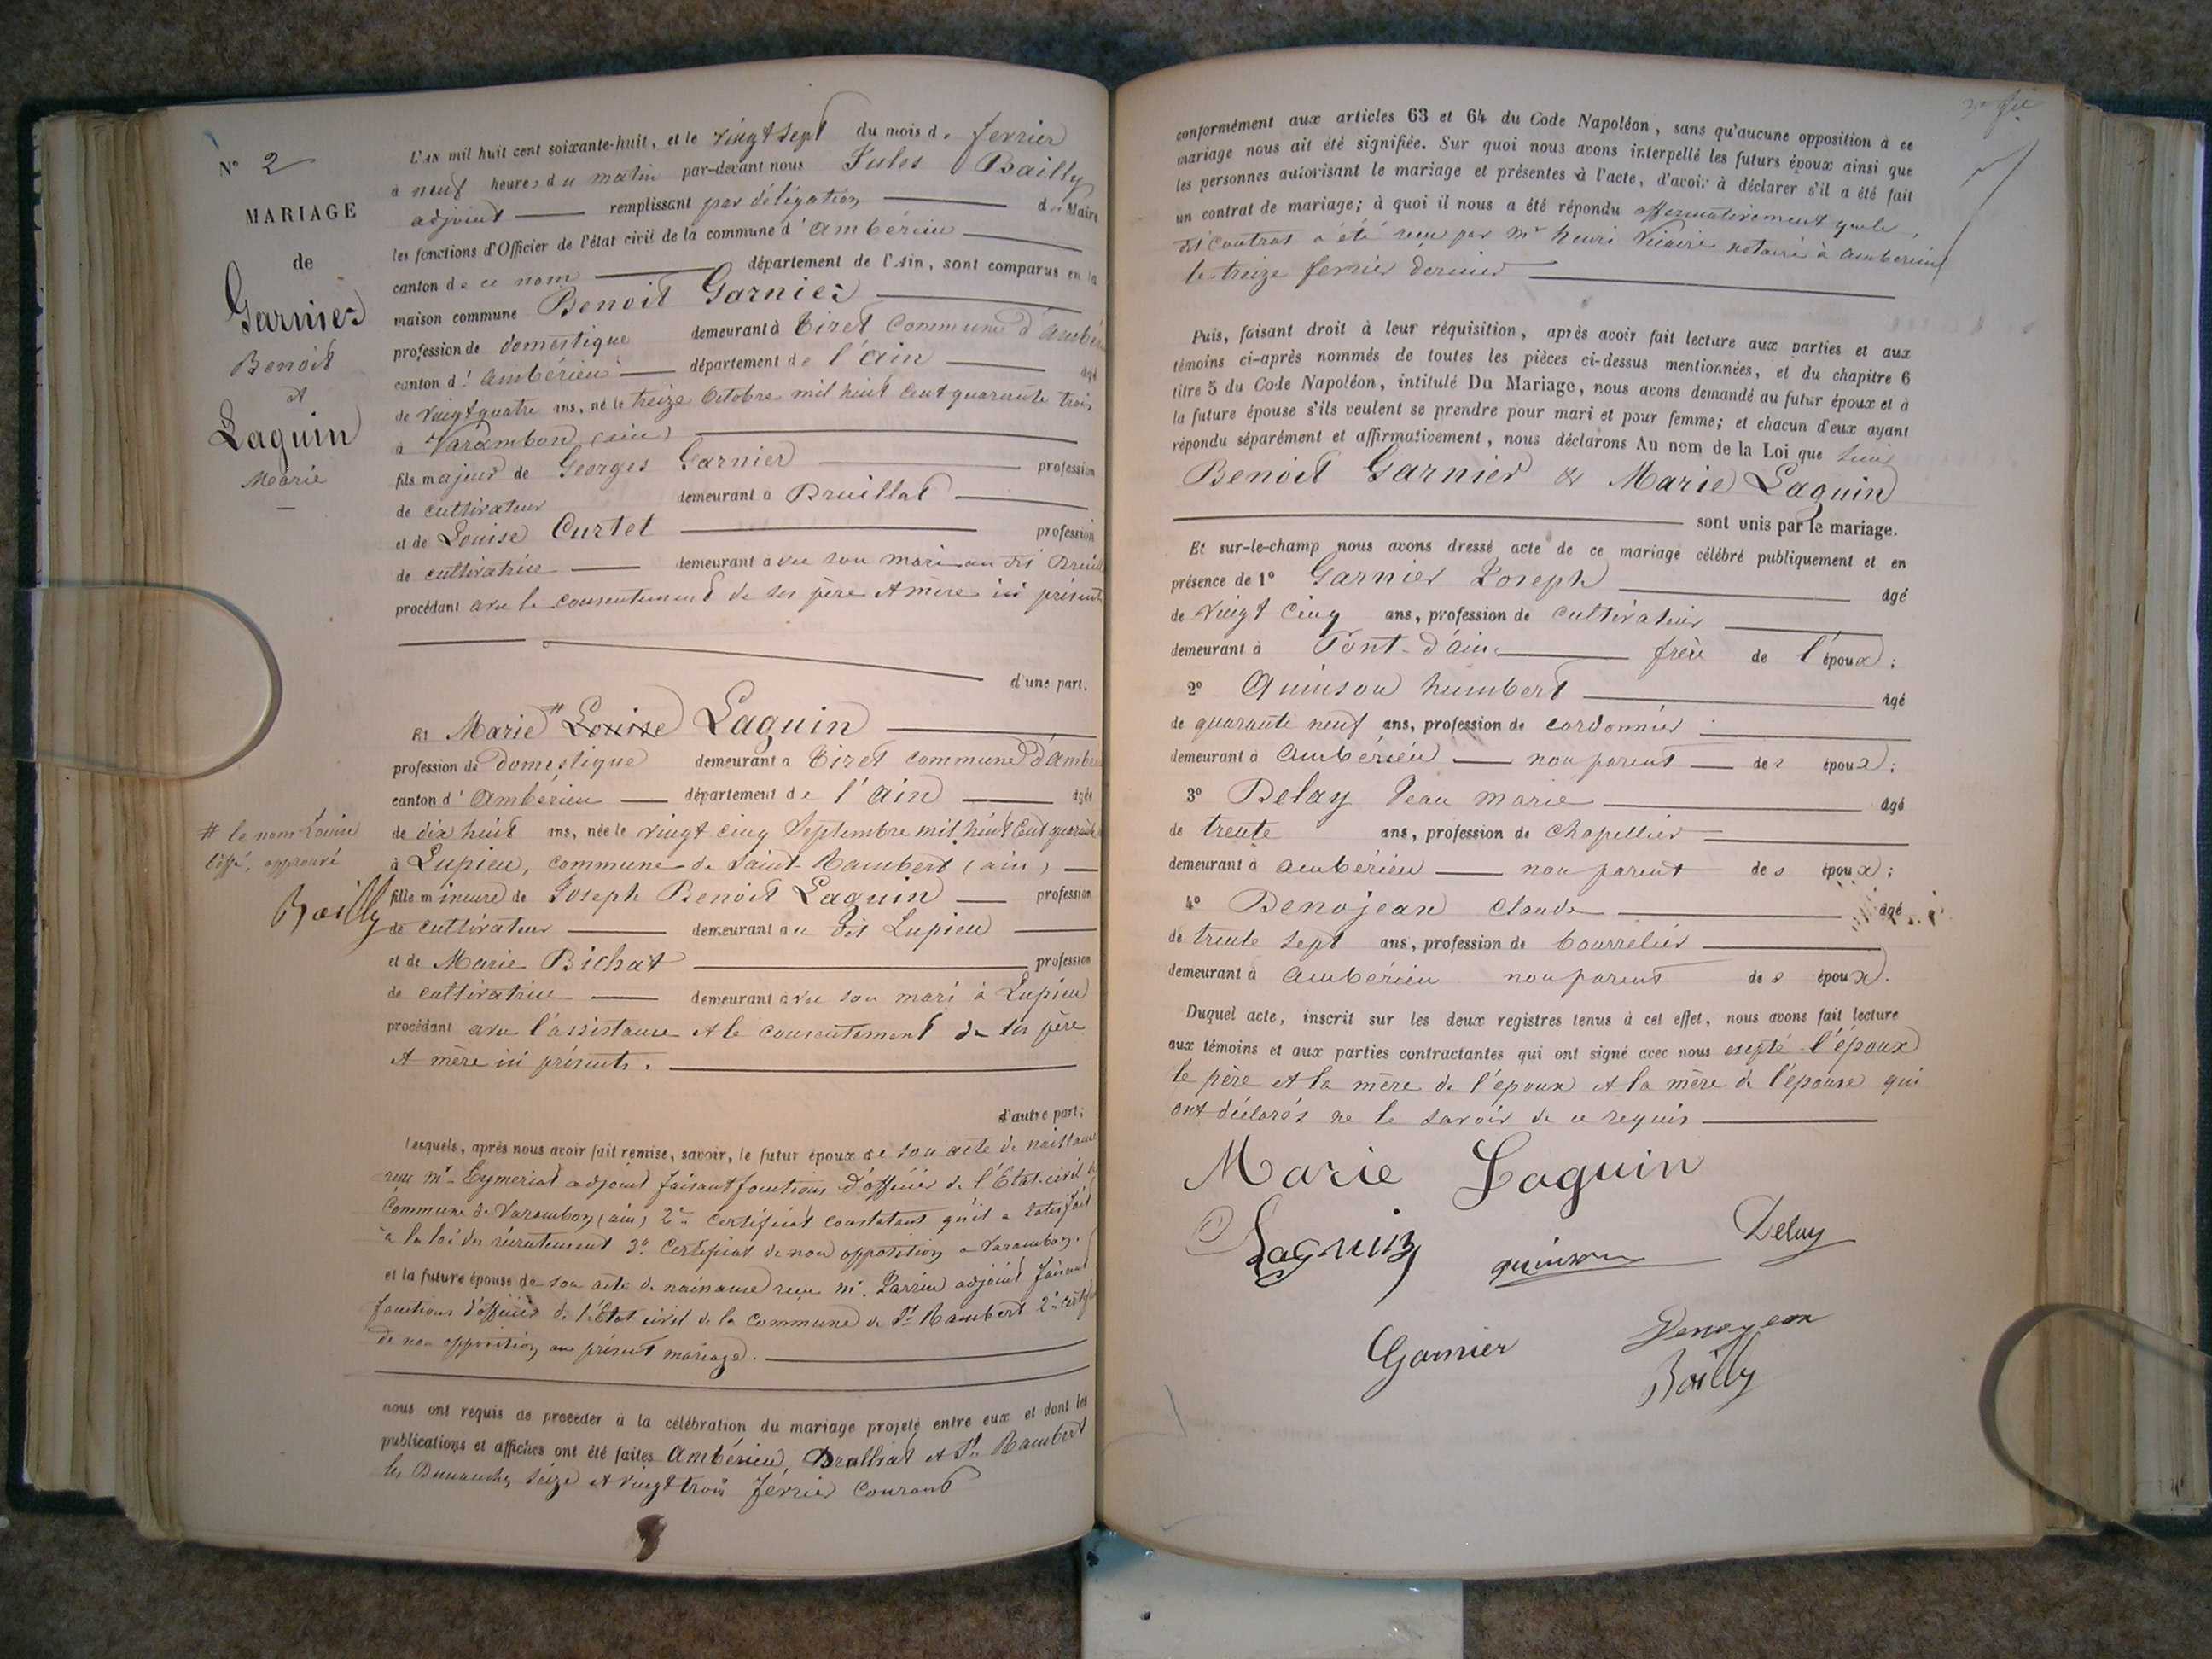 N° 2
MARIAGE
de
Garnier
Benoit
et
Laguin
Marie
L'AN mil huit cent soixante-huit, et le vingt sept du mois de fevrier
à neuf heures du matin par-devant nous Jules Bailly
adjoint remplissant par délégation du Maire
les fonctions d'Officier de l'état civil de la commune d'Ambérieu
canton de ce nom département de l'Ain, sont comparus en la
maison commune Benoit Garnier
profession de domestique demeurant à Tiret commune d'Ambér
canton d'Ambérieu département de l'Ain âgé
de vingt quatre ans, né le treize Octobre mil huit cent quarante trois
à Varambon (ain)
fils majeur de Georges Garnier profession
de cultivateur demeurant à Druillat
et de Louise Curtet profession
de cultivatrice demeurant avec son mari au dit Druill
procédant avec le consentement de ses père et mère ici présents
d'une part.
Et Marie # Louise Laguin
profession de domestique demeurant à Tiret commune d'Ambé
canton d'Ambérieu département de l'Ain âgée
de dix huit ans, née le vingt cinq Septembre mil huit cent quarante
# le nom Louise
biffé, approuvé
Bailly
à Lupieu, commune de Saint-Rambert (ain)
fille mineure de Joseph Benoit Laguin profession
de cultivateur demeurant au dit Lupieu
et de Marie Bichat profession
de cultivatrice demeurant avec son mari à Lupieu
procédant avec l'assistance et le consentement de ses père
et mère ici présents.
d'autre part;
Lesquels, après nous avoir fait remise, savoir, le futur époux de son acte de naissance
reçu Mr Eymeriat adjoint faisant fonctions d'officier de l'Etat-civil
Commune de Varambon (ain) 2° Certificat constatant qu'il a satisfait
à la loi du recrutement 3° Certificat de non opposition à Varambon.
et la future épouse de son acte de naissance reçu Mr. Larrieu adjoint faisant
fonctions d'officier de l'Etat civil de la Commune de St Rambert 2° certif
de non opposition au présent mariage.
nous ont requis de procéder à la célébration du mariage projeté entre eux et dont les
publications et affiches ont été faites Ambérieu, Druillat et St Rambert
les Dimanches seize et vingt trois Février Courant
conformément aux articles 63 et 64 du Code Napoléon, sans qu'aucune opposition à ce
mariage nous ait été signifiée. Sur quoi nous avons interpellé les futurs époux ainsi que
les personnes autorisant le mariage et présentes à l'acte, d'avoir à déclarer s'il a été fait
un contrat de mariage; à quoi il nous a été répondu affirmativement que le
dit Contrat a été reçu par Mr henri notaire à Ambérieu
le treize fevrier dernier
Puis, faisant droit à leur réquisition, après avoir fait lecture aux parties et aux
témoins ci-après nommés de toutes les pièces ci-dessus mentionnées, et du chapitre 6
titre 5 du Code Napoléon, intitulé Du Mariage, nous avons demandé au futur époux et à
la future épouse s'ils veulent se prendre pour mari et pour femme; et chacun d'eux ayant
répondu séparément et affirmativement, nous déclarons Au nom de la Loi que
Benoit Garnier & Marie Laguin
sont unis par le mariage.
Et sur-le-champ nous avons dressé acte de ce mariage célébré publiquement et en
présence de 1° Garnier Joseph âgé
de vingt cinq ans, profession de cultivateur
demeurant à Pont-d'ain frère de l'époux;
2° Quinson humbert âgé
de quarante neuf ans, profession de cordonnier
demeurant à Ambérieu non parent des époux;
3° Delay Jean Marie âgé
de trente ans, profession de chapellier
demeurant à Ambérieu non parent des époux;
4° Denojean Claude âgé
de trente sept ans, profession de bourrelier
demeurant à Ambérieu non parent des époux.
Duquel acte, inscrit sur les deux registres tenus à cet effet, nous avons fait lecture
aux témoins et aux parties contractantes qui ont signé avec nous exepté l'époux
le père et la mère de l'époux et la mère de l'épouse qui
ont déclarés ne le savoir de ce requis
Marie Laguin
Laguin
quinson
Delay
Garnier
Denojean
Bailly